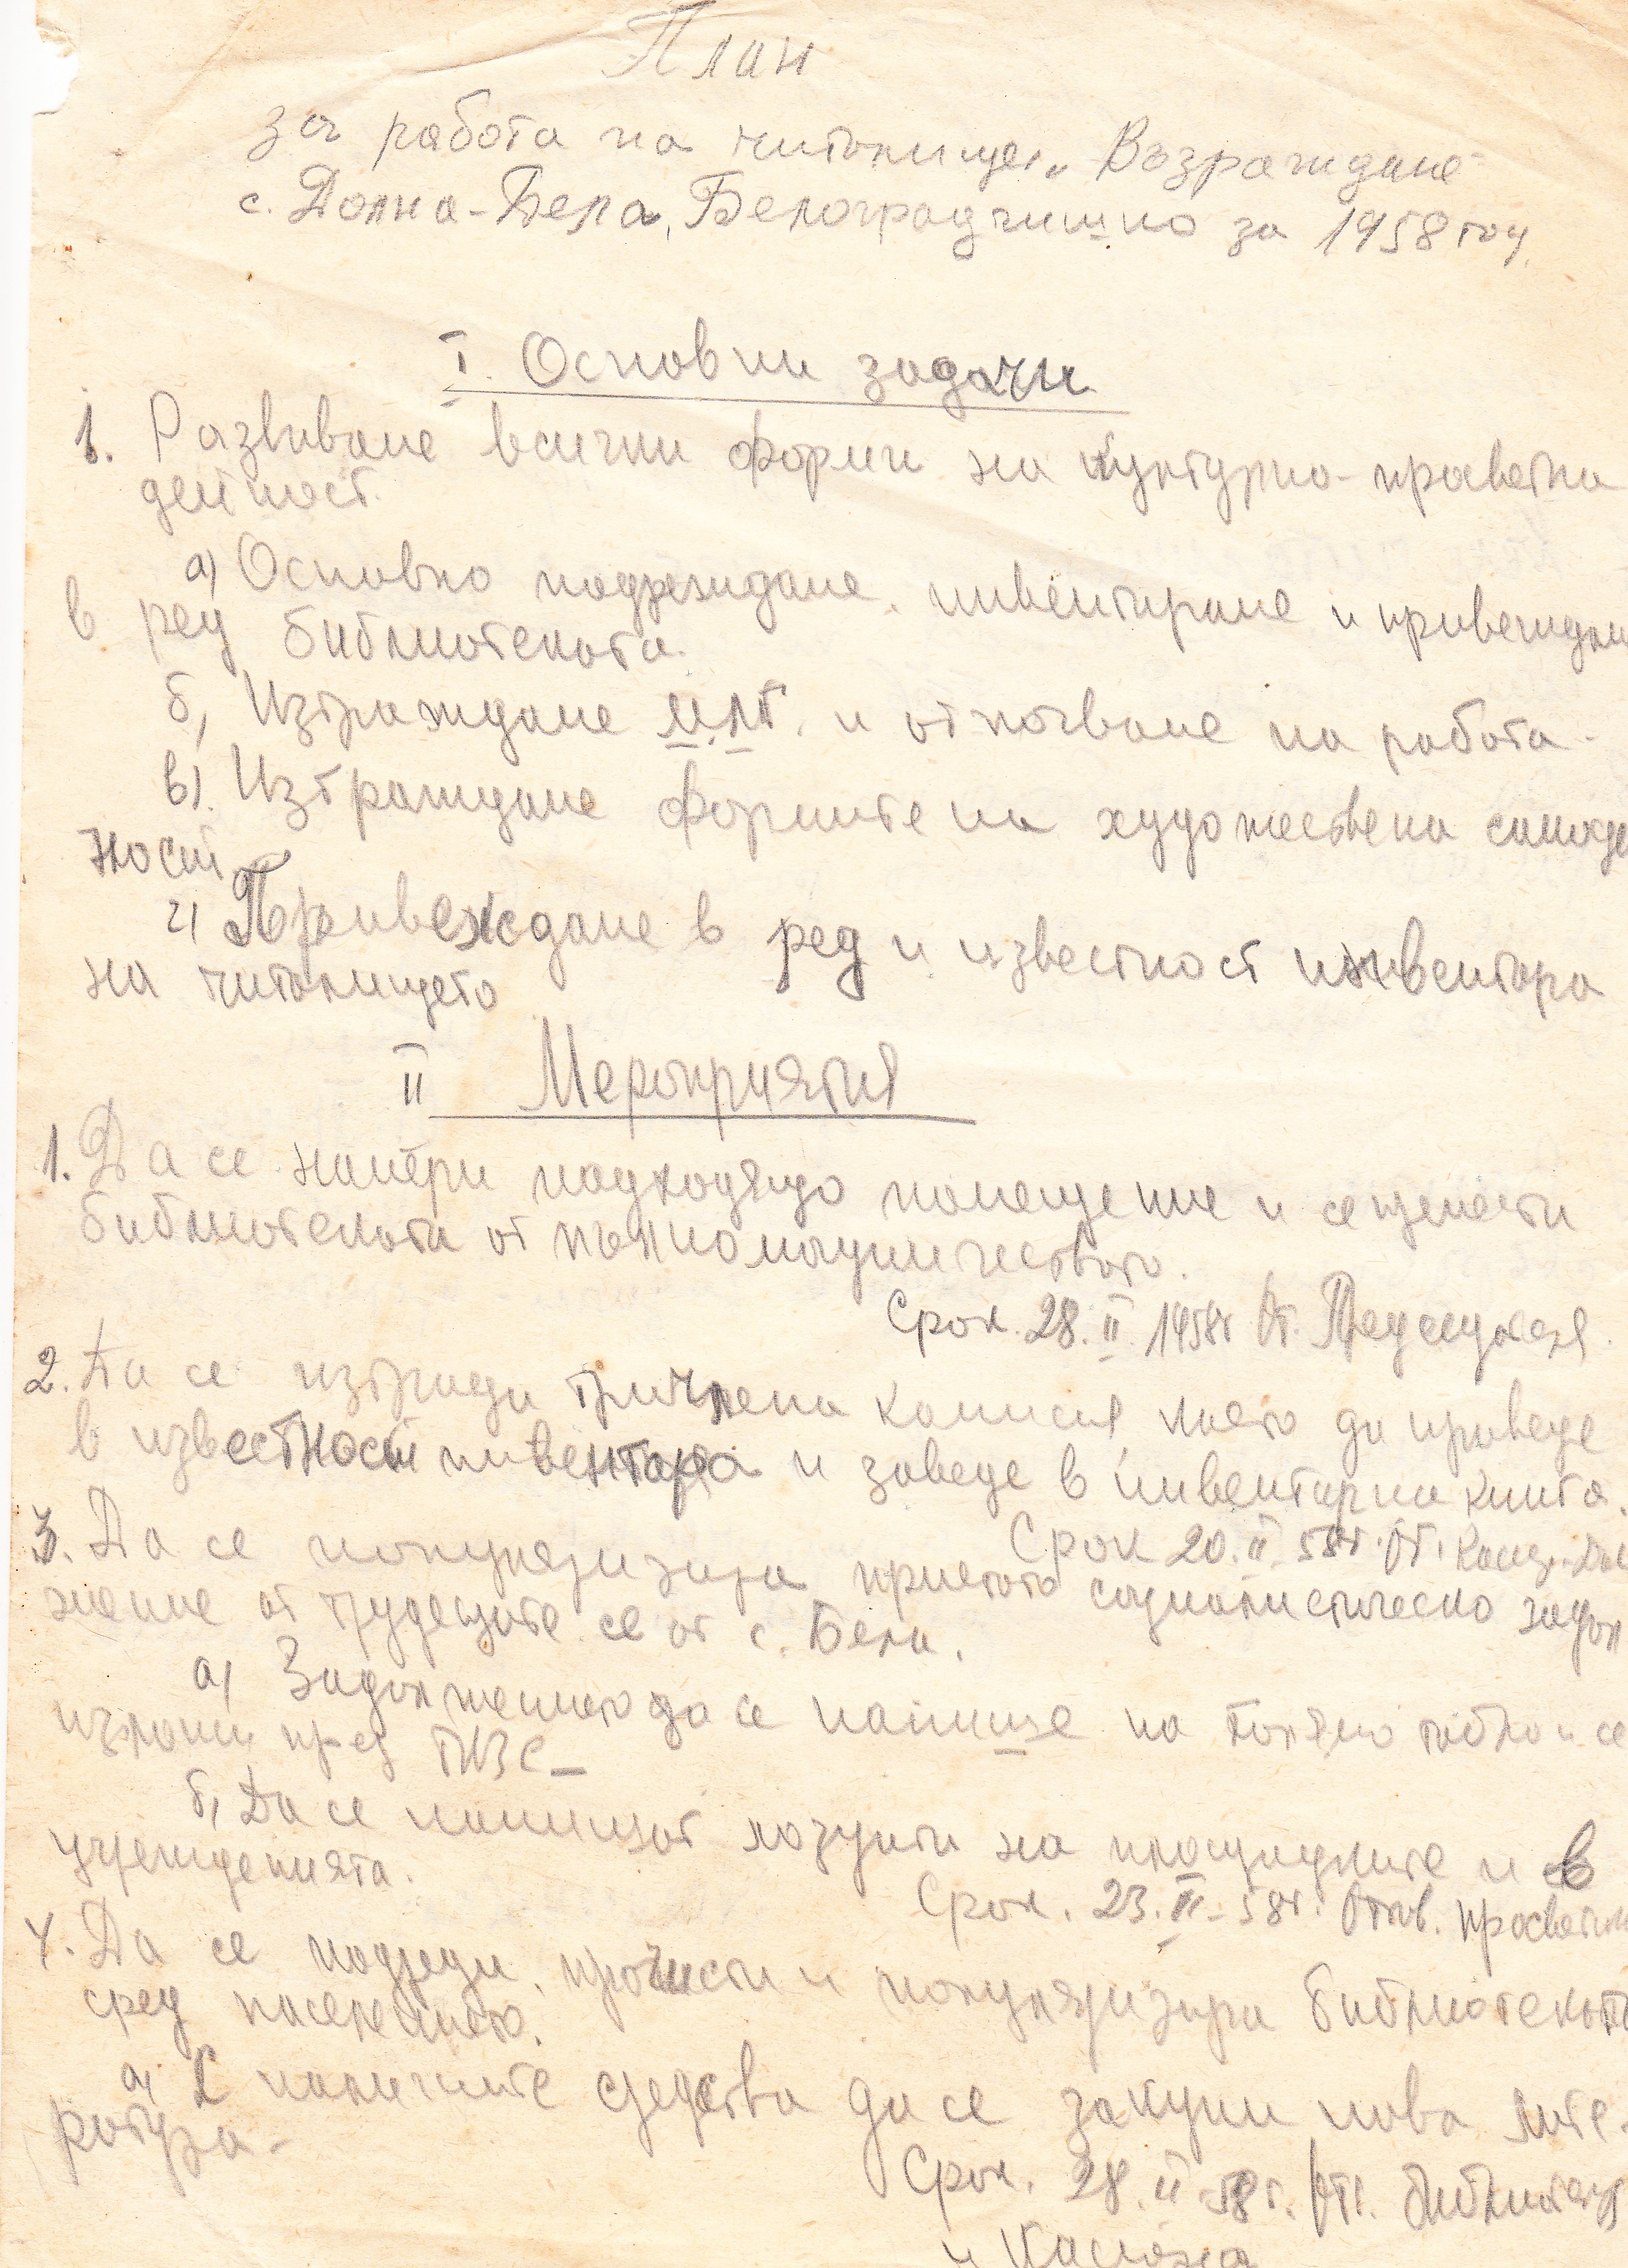 План
за работа на читалище „Възраждане"
с. Долна-Бела, Белоградчишко за 1958 год.
I. Основни задачи
1. Развиване всички форми на културно-просветна
дейност.
а) Основно подреждане, инвентиране и привеждане
в ред библиотеката.
б) Изграждане и отпочване на работа.
в). Изграждане формите на художествена самодей
ност
г) Привеждане в ред и известност инвентара
на читалището
II Мероприятия
1. Да се намери подходящо помещение и се премести
библиотеката от пълномощничеството.
Срок. 28. II. 1958г От. Председателя.
2. Да се изгради тричлена комисия която да приведе
в известност инвентара и заведе в инвентарна книга.
Срок 20. II. 58г. От.
3. Да се популяризира приетото социалистическо задъл
жение от трудещите се от с. Бела.
а) Задължението да се напише на голямо табло и се
изложи пред
б) Да се напишат лозунги на площадките и в
учрежденията.
Срок. 23. II. 58г. Отгов.
4. Да се подреди, прочисти и популяризира библиотеката
сред населението.
а) С наличните средства да се закупи нова лите-
ратура.
Срок. 28. II. 58г. От. библиотекаря
и Касиера